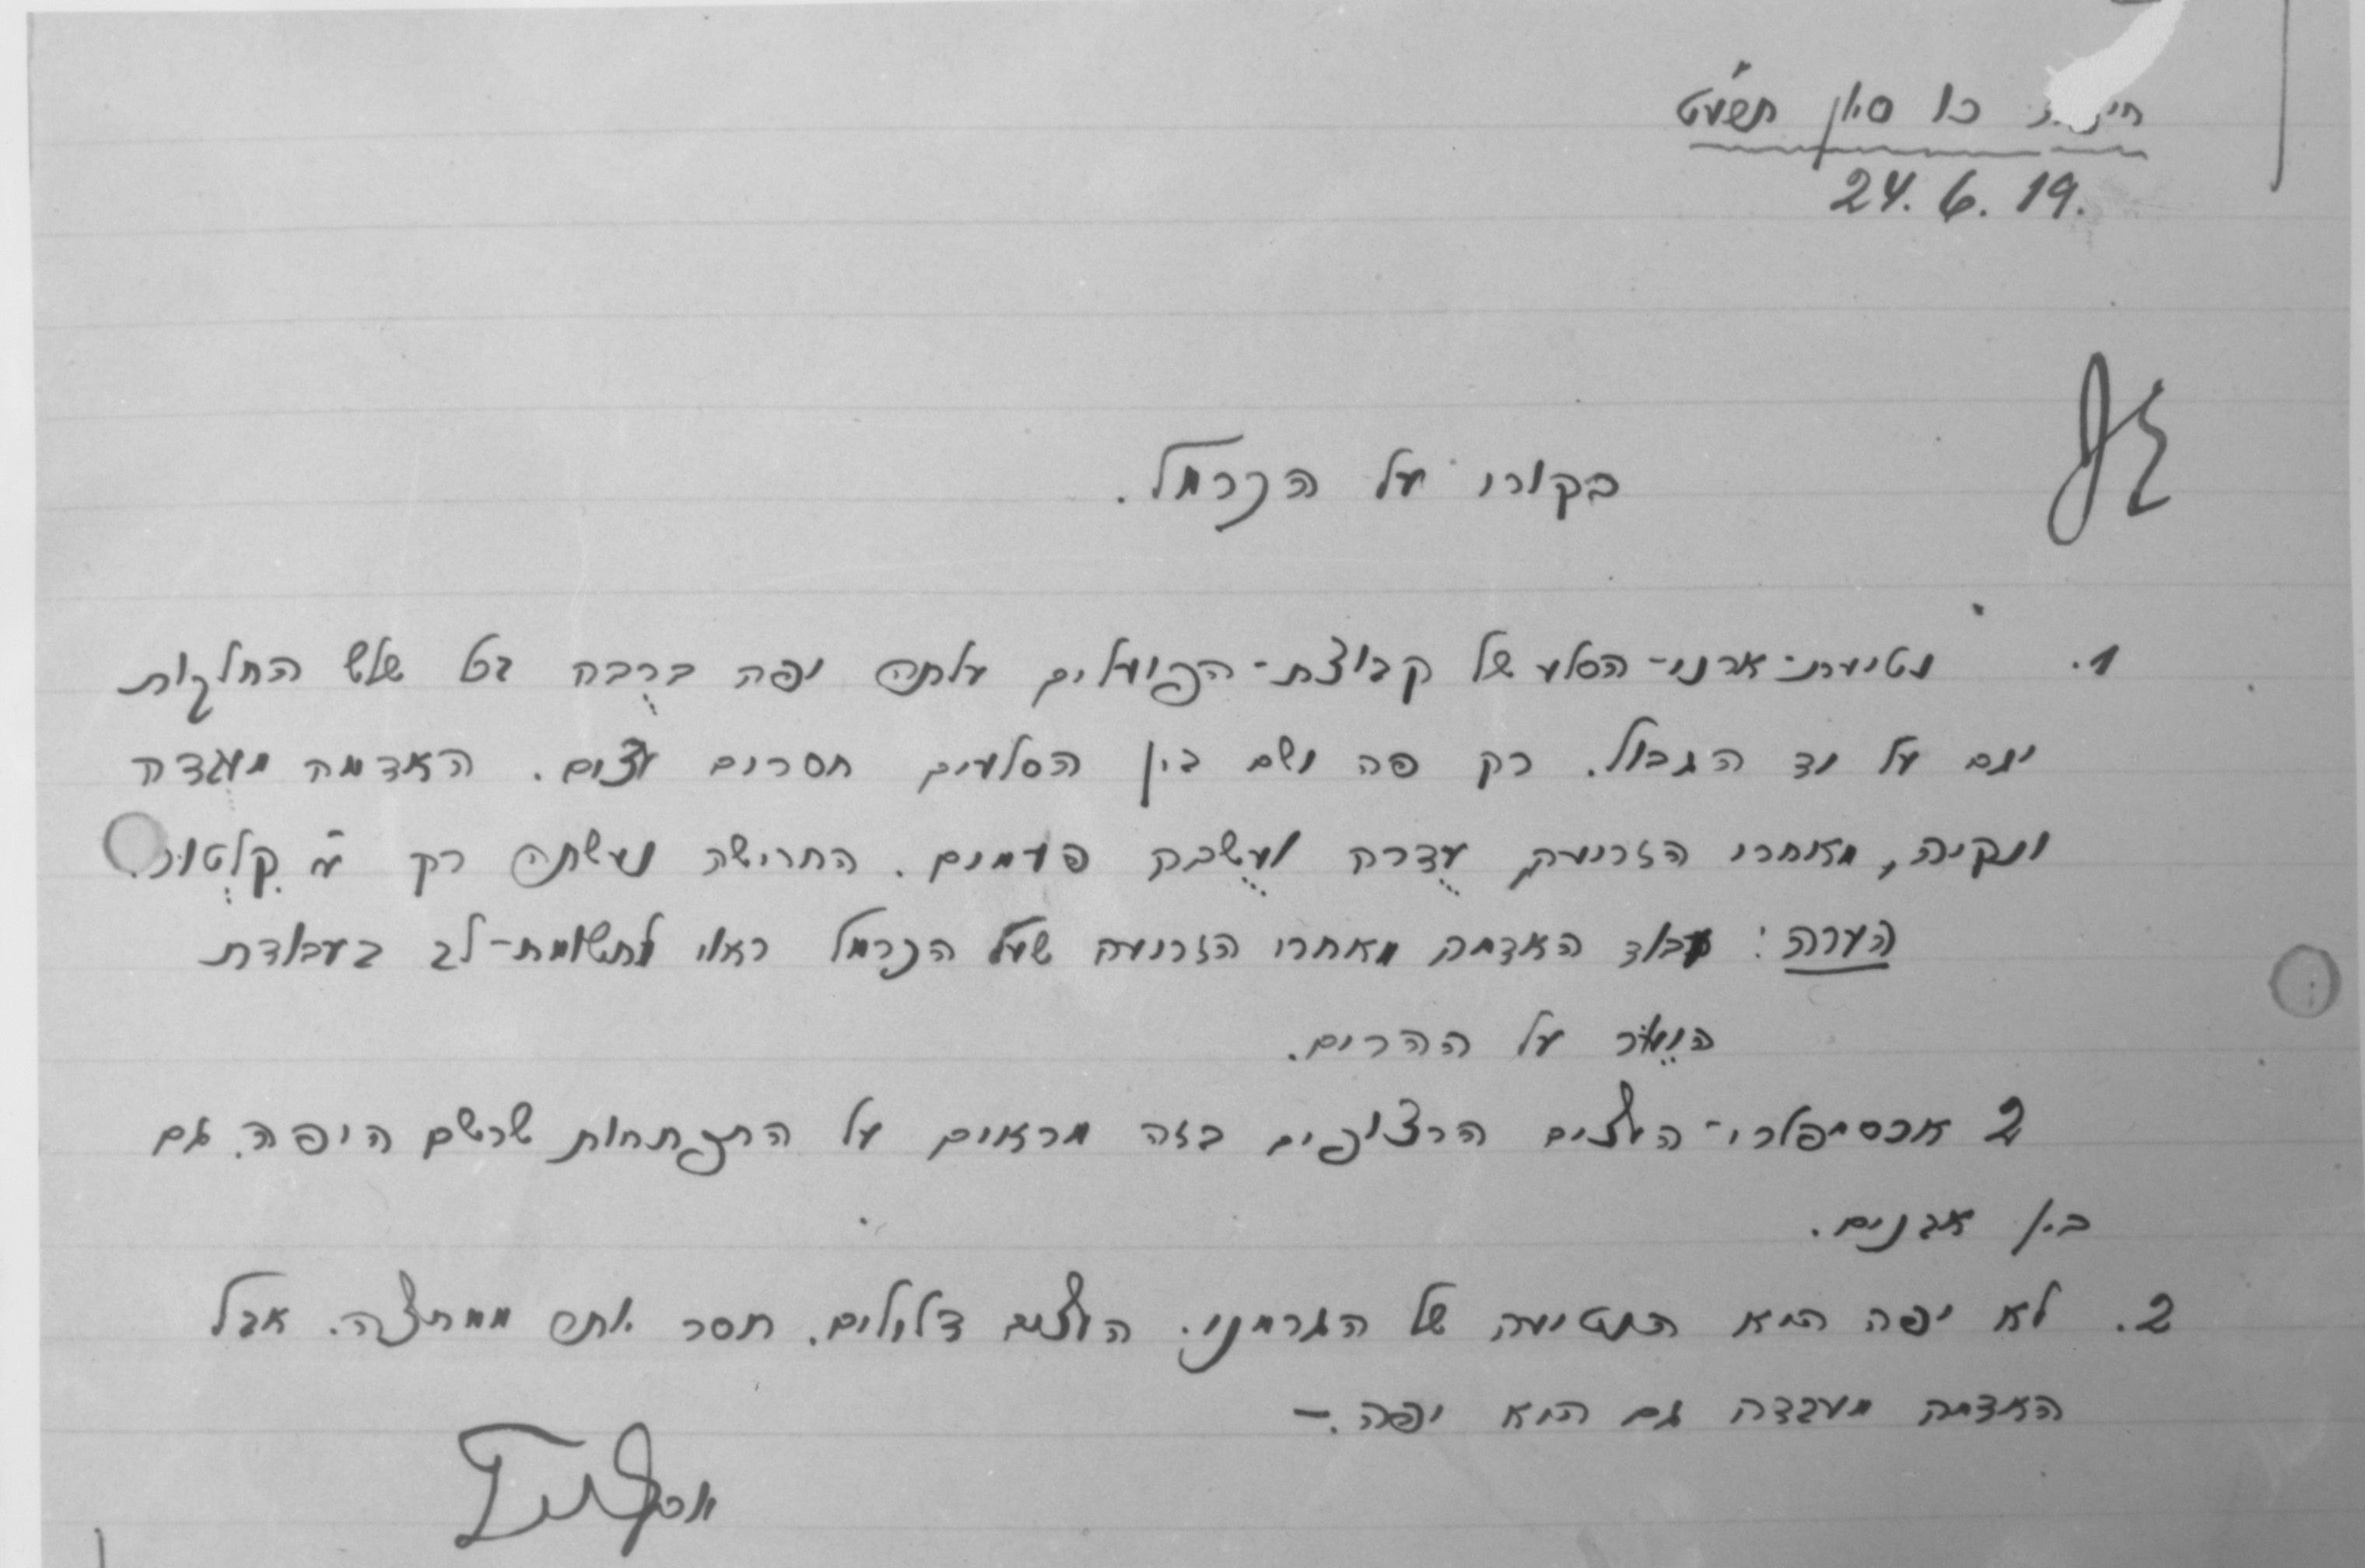 כו סון תרע"ט
24. 6. 19.
בקורי על הכרמל.
1. נטיעת-ארני-הסלע של קבוצת-הפועלים עלתה יפה ברבה בכל שלש החלקות
וגם על יד הגבול. רק פה ושם בין הסלעים חסרים עצים. האדמה מעבדה
ונקיה, מאחרי הזריעה עֻדרה ועֻשבה פעמים. החרישה נעשתה רק ע"י קֻלְטִוּ
הערה: עבוד האדמה מאחרי הזריעה שעל הכרמל ראוי לתשומת-לב בעבודת
היִעור על ההרים.
2 אכסמפלרי-העצים הרצופים בזה מראים על התפתחות שרשם היפה. גם
בין אבנים.
2. לא יפה היא הנטיעה של הגרמני. העצים דלולים. חסר ממחצה. אבל
האדמה מעבדה גם היא יפה.—